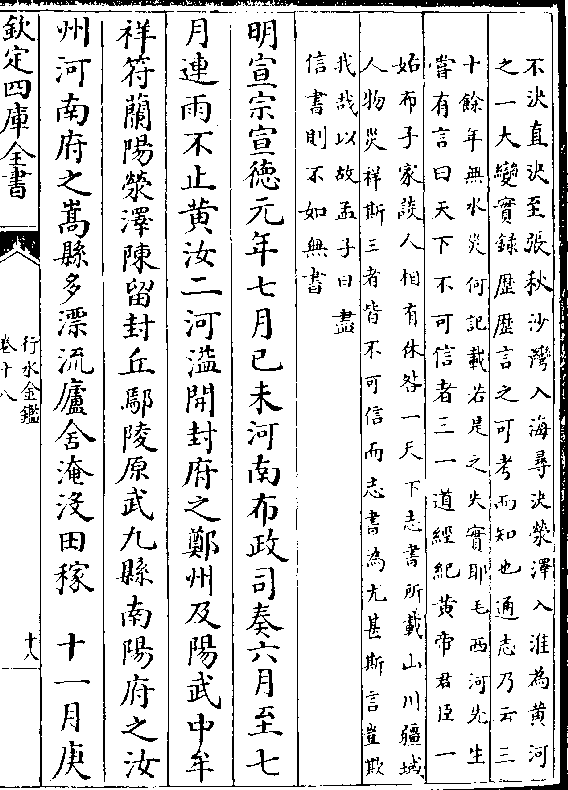 不決直決至張秋沙灣入海尋決滎澤入淮為黄河
之一大變實録歴歴言之可考而知也通志乃云三
十餘年無水災何記載若是之失實耶毛西河先生
嘗有言曰天下不可信者三一道經紀黄帝君臣一
姑布子家談人相有休咎一天下志書所載山川疆域
人物災祥斯三者皆不可信而志書為尤甚斯言豈欺
我哉以故孟子曰盡
信書則不如無書
明宣宗宣德元年七月己未河南布政司奏六月至七
月連雨不止黄汝二河溢開封府之鄭州及陽武中牟
祥符蘭陽滎澤陳留封丘鄢陵原武九縣南陽府之汝
州河南府之嵩縣多漂流廬舍淹没田稼　十一月庚
欽定四庫全書
行水金鑑
卷十八
十八